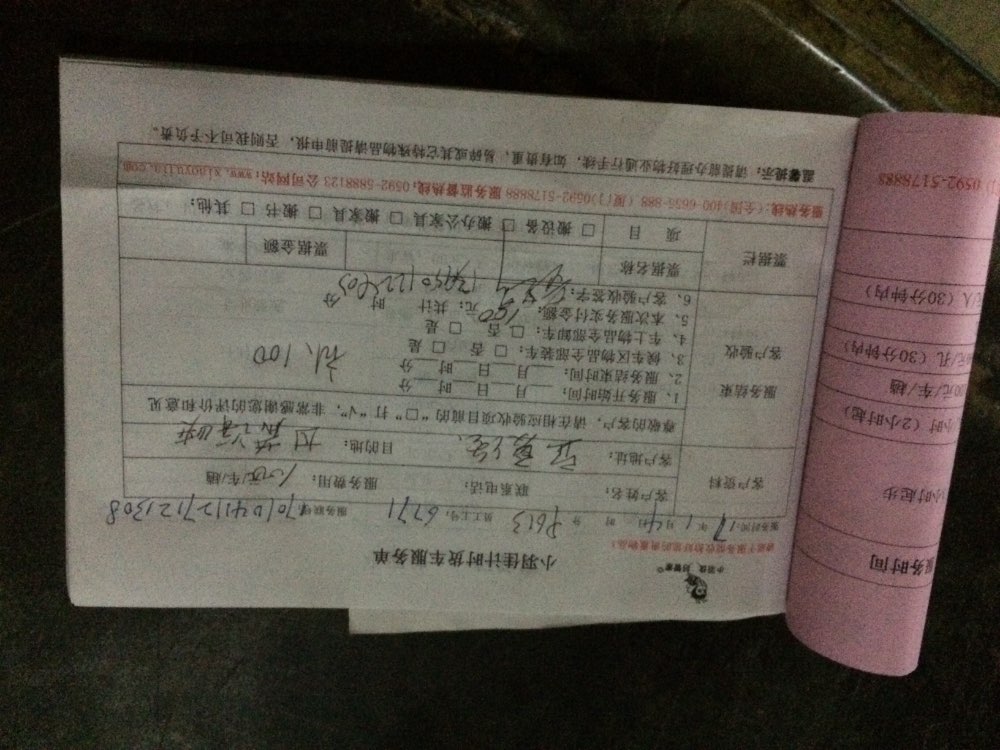 小羽佳 好管家
小羽佳计时货车服务单
请将于服务前收拾好您的贵重物品!
服务时间: 17 年 1 月 4 日 时 分 P613 员工工号: 6771 服务联单
客户资料 客户姓名: 联系电话: 服务费用: 100元/车/趟
客户地址: 目的地:
尊敬的客户, 请在相应验收项目前的 "□" 打 "√", 非常感谢您的评价和意见
服务结束 客户验收
1、服务开始时间: 月 日 时 分
2、服务结束时间: 月 日 时 分
3、候车区物品全部装车: □ 否 □ 是
4、车上物品全部卸车: □ 否 □ 是
5、本次服务支付金额: 100 元; 共计 时 分
6、客户验收签字:
100
票据栏 票据名称 票据金额
项 目 □ 搬设备 □ 搬办公家具 □ 搬家具 □ 搬书 □ 其他:
服务热线: (全国)400-6655-888 (厦门)0592-5178888 服务监督热线: 0592-5888123 公司网站: www.xiaoyujia.com
温馨提示: 请提前办理好物业通行手续, 如有贵重、易碎或其它特殊物品请提前申报, 否则我司不予负责。
服务时间
小时起步
小时 (2小时起)
元/车/趟
元/孔 (30分钟内)
元/人 (30分钟内)
0592-5178888